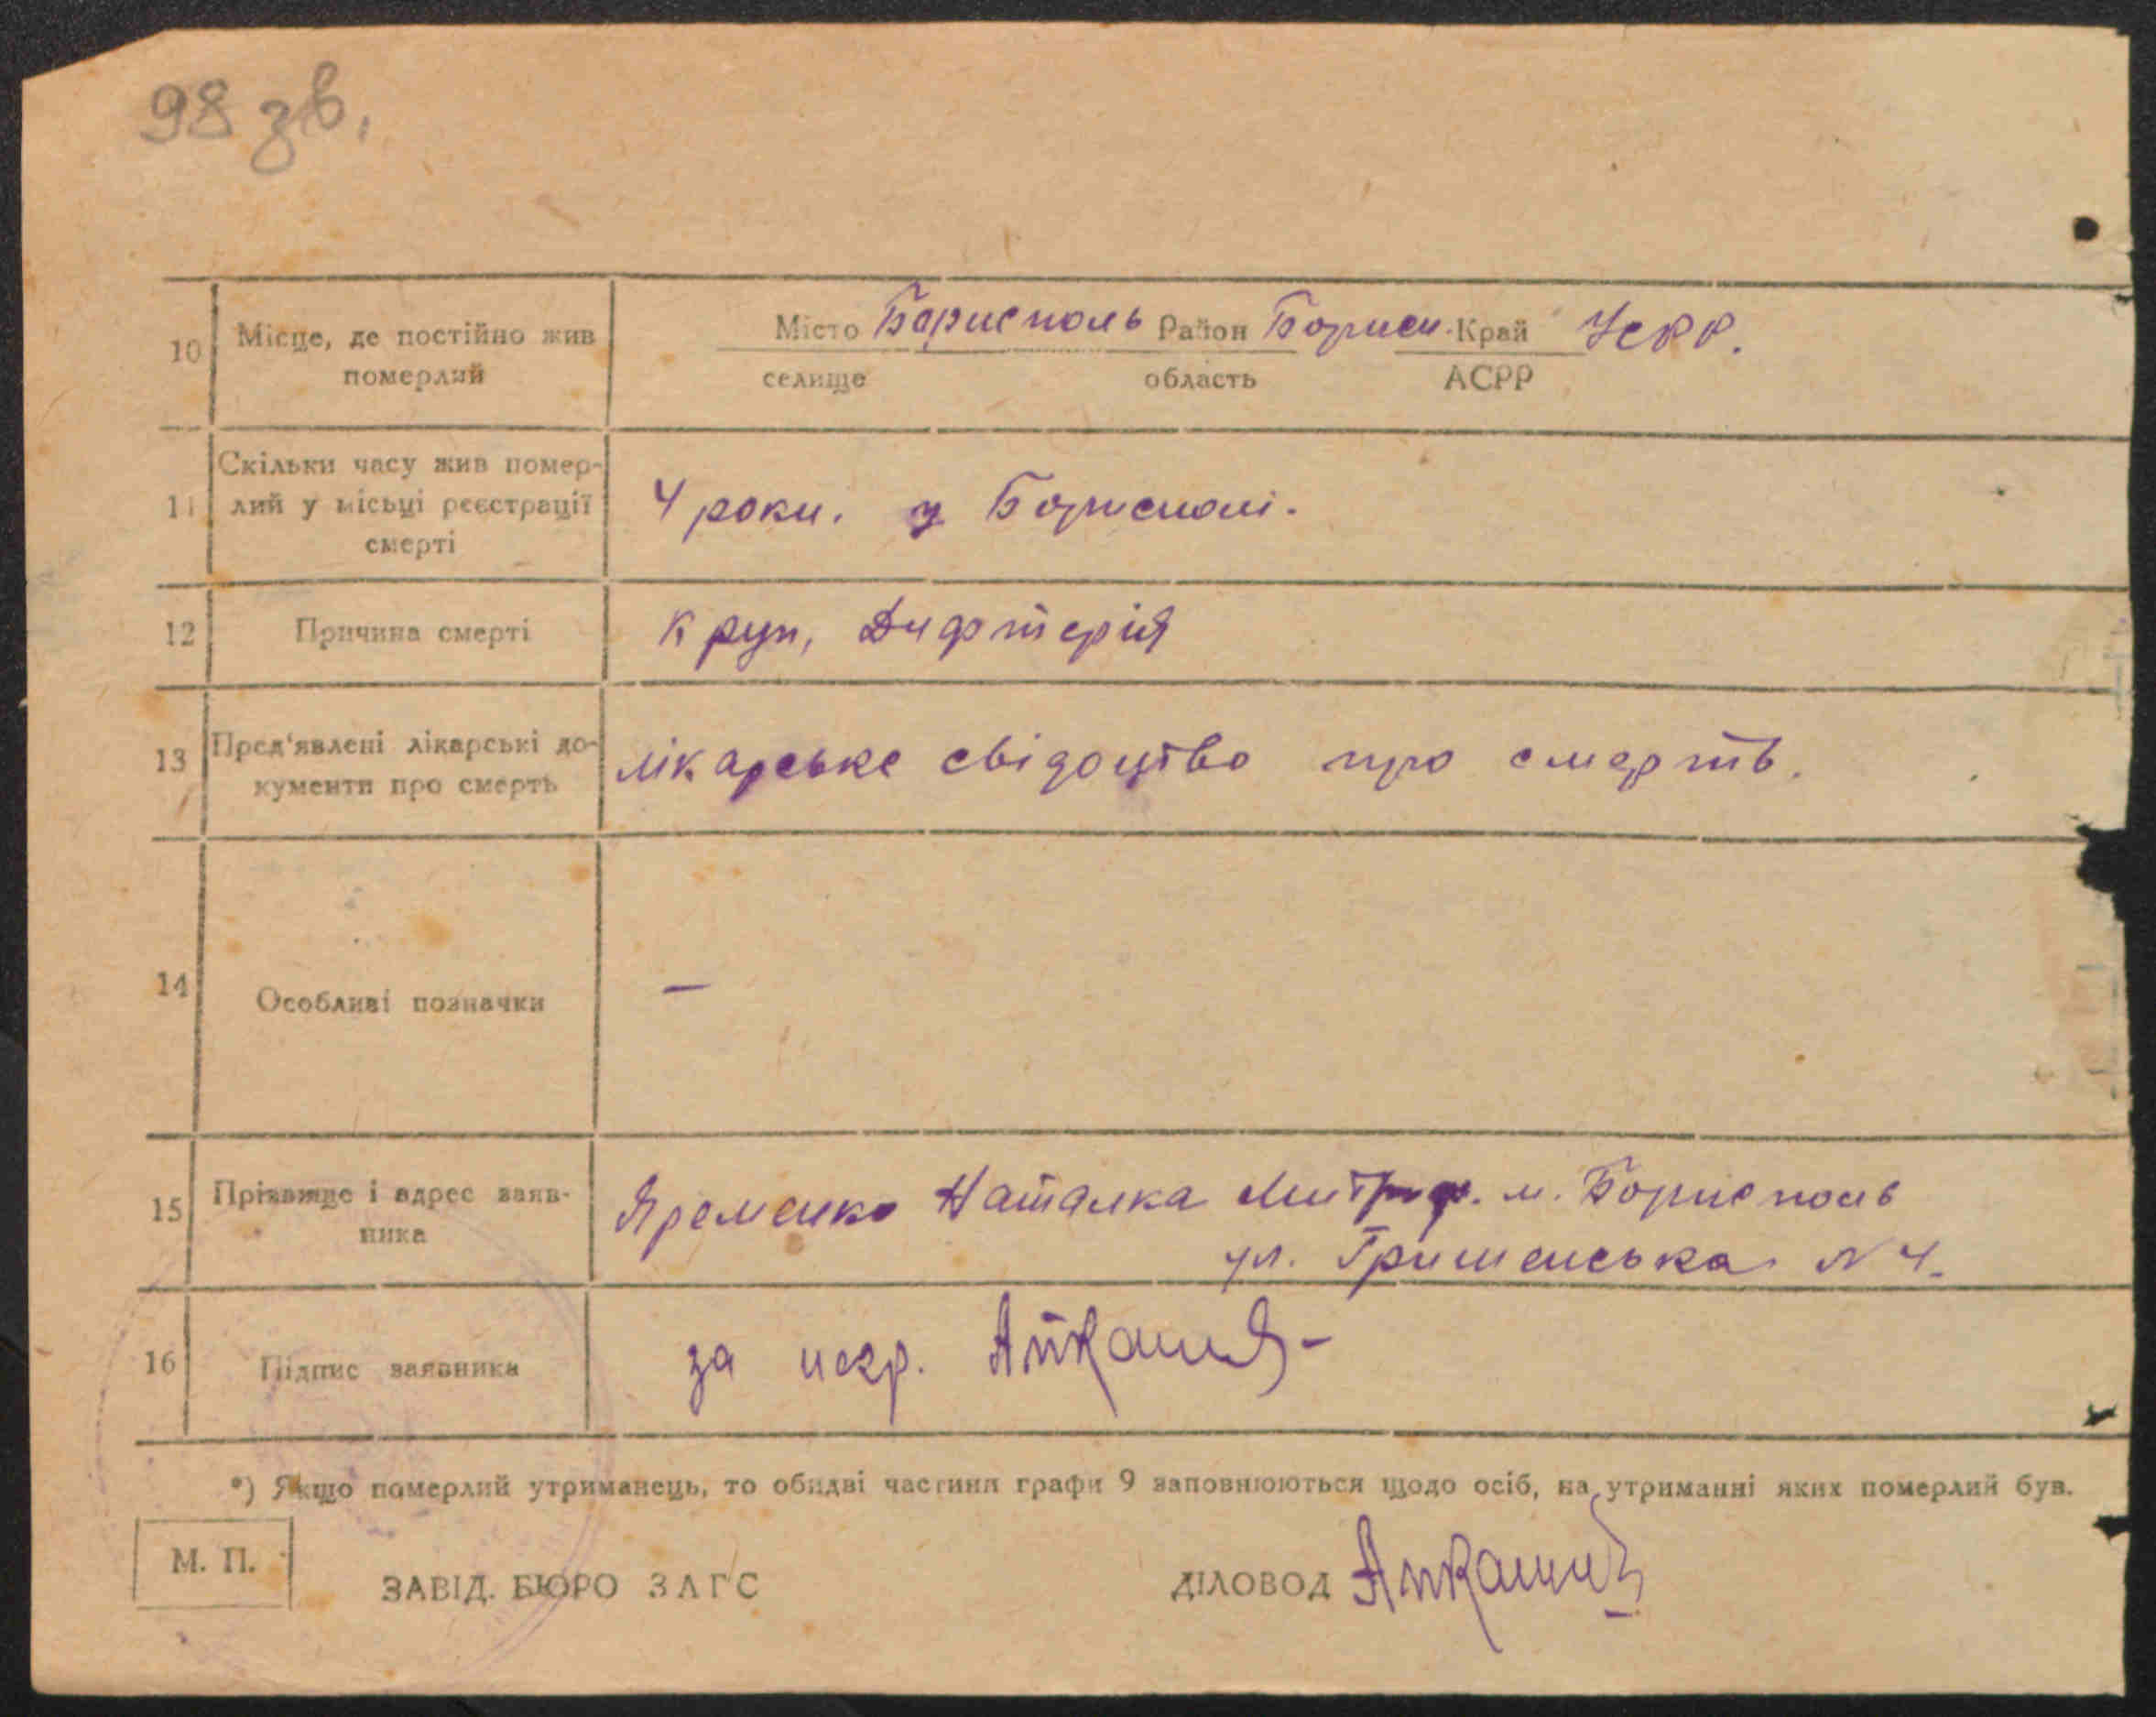 98 зв.
10 Місце, де постійно жив померлий
Місто Бориспoль Район Борисп. Край УСРР.
селище область АСРР
11 Скільки часу жив помер-
лий у місьці реєстрації
смерті
4 роки. у Борисполі.
12 Причина смерті
Круп, Дифтерія
13 Пред'явлені лікарські до-
кументи про смерть
лікарське свідоцтво про смерть.
14 Особливі позначки
—
15 Прізвище і адрес заяв-
ника
Яременко Наталка Митроф. м. Бориспoль
ул. Гришенська N 4.
16 Підпис заявника
за негр.
*) Якщо померлий утриманець, то обидві частини графи 9 заповнюються щодо осіб, на утриманні яких померлий був.
М. П.
ЗАВІД. БЮРО ЗАГС
ДІЛОВОД